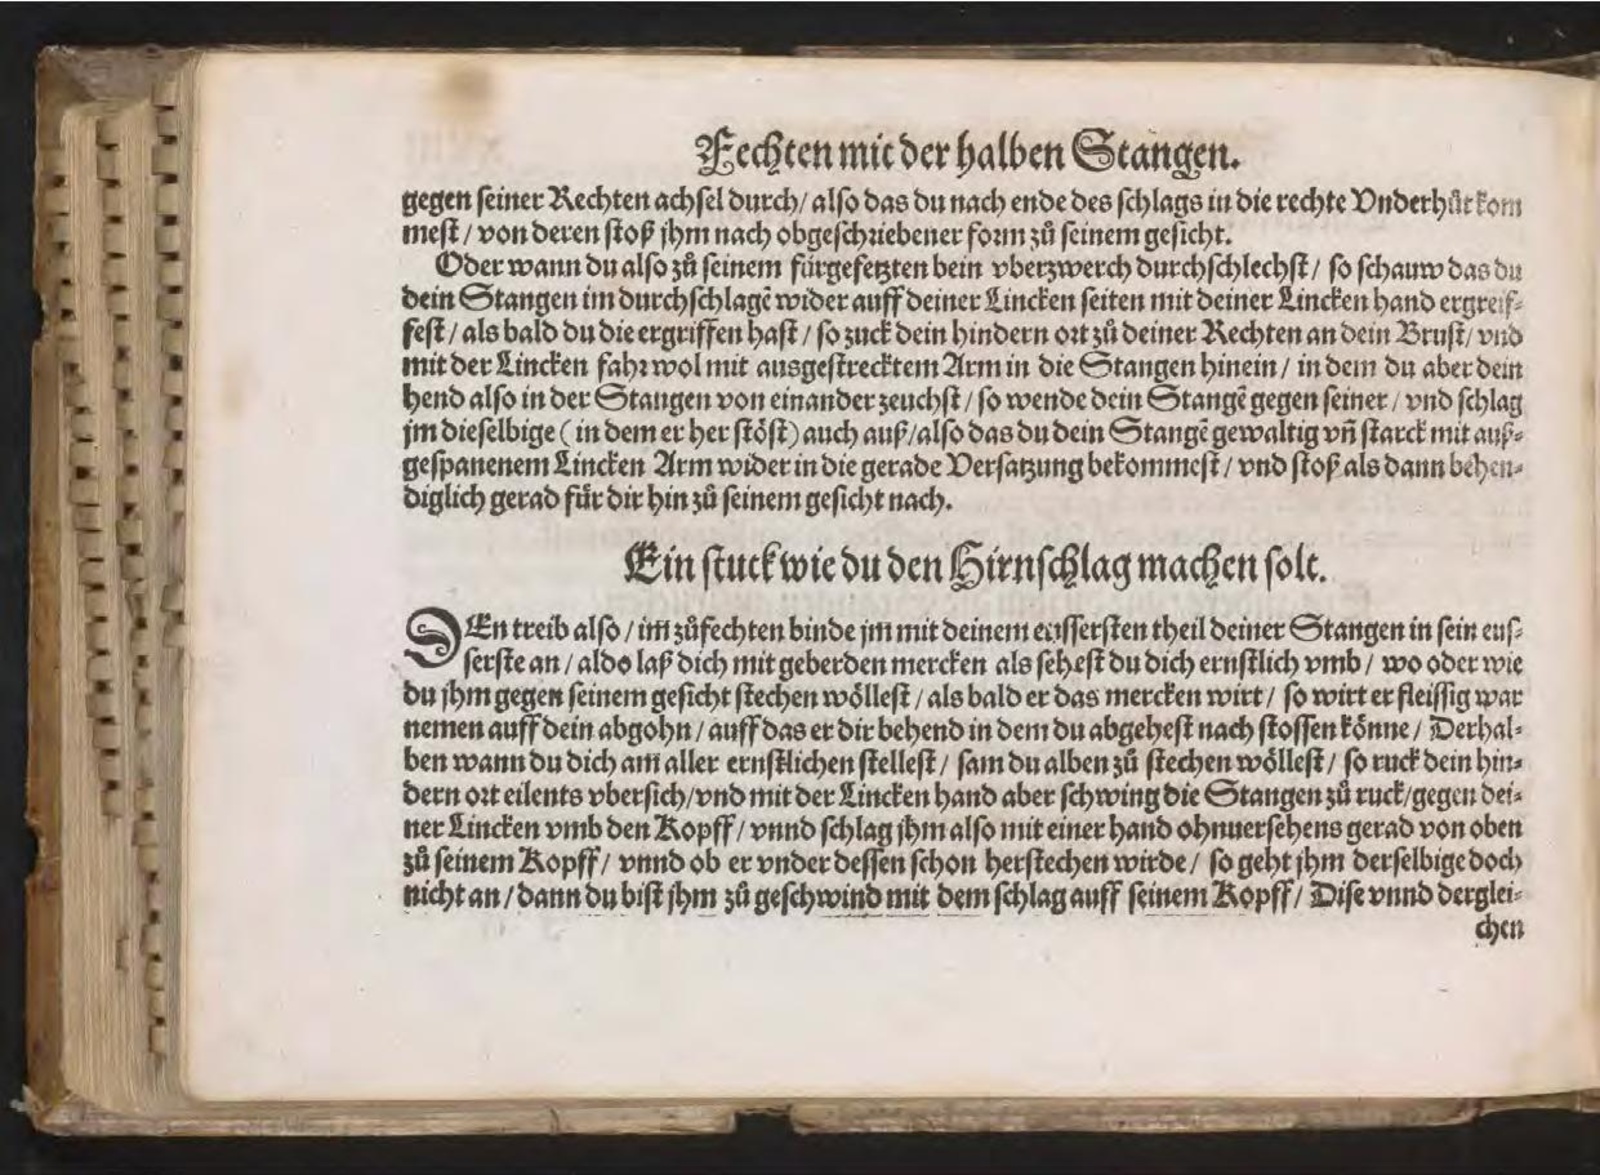 Fechten mit der halben Stangen.
gegen seiner Rechten achsel durch/ also das du nach ende des schlags in die rechte Vnderhůt kom
mest/ von deren stoß jhm nach obgeschriebener form zů seinem gesicht.
Oder wann du also zů seinem fürgesetzten bein vberzwerch durchschlechst/ so schauw das du
dein Stangen im durchschlagē wider auff deiner Lincken seiten mit deiner Lincken hand ergreif-
fest/ als bald du die ergriffen hast/ so zuck dein hindern ort zů deiner Rechten an dein Brust/ vnd
mit der Lincken fahr wol mit ausgestrecktem Arm in die Stangen hinein/ in dem du aber dein
hend also in der Stangen von einander zeuchst/ so wende dein Stangē gegen seiner/ vnd schlag
jm dieselbige (in dem er her stöst) auch auß/ also das du dein Stangē gewaltig vñ starck mit auß-
gespanenem Lincken Arm wider in die gerade Versatzung bekommest/ vnd stoß als dann behen-
diglich gerad für dir hin zů seinem gesicht nach.
Ein stuck wie du den Hirnschlag machen solt.
DEn treib also/ im̄ zůfechten binde jm mit deinem eussersten theil deiner Stangen in sein eus-
serste an/ aldo laß dich mit geberden mercken als sehest du dich ernstlich vmb/ wo oder wie
du jhm gegen seinem gesicht stechen wöllest/ als bald er das mercken wirt/ so wirt er fleissig war
nemen auff dein abgohn/ auff das er dir behend in dem du abgehest nach stossen könne/ Derhal-
ben wann du dich am̄ aller ernstlichen stellest/ sam du alben zů stechen wöllest/ so ruck dein hin-
dern ort eilents vbersich/ vnd mit der Lincken hand aber schwing die Stangen zů ruck/ gegen dei-
ner Lincken vmb den Kopff/ vnnd schlag jhm also mit einer hand ohnuersehens gerad von oben
zů seinem Kopff/ vnnd ob er vnder dessen schon herstechen wirde/ so geht jhm derselbige doch
nicht an/ dann du bist jhm zů geschwind mit dem schlag auff seinem Kopff/ Dise vnnd derglei-
chen